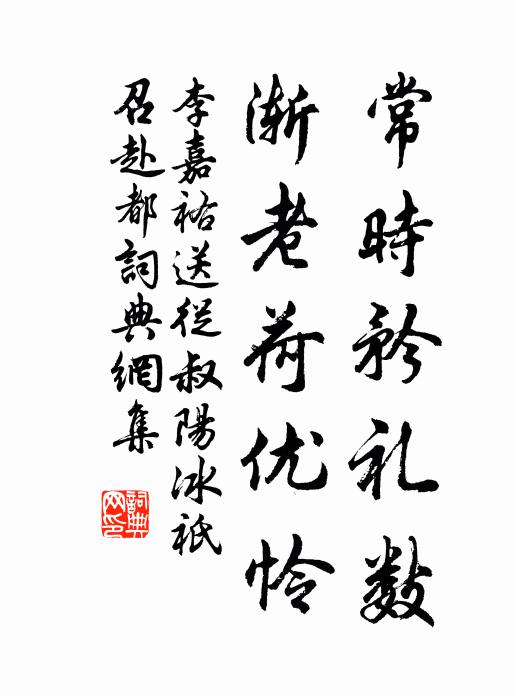 常時矜礼数
渐老荷优怜
李嘉祐送従叔陽冰祇
召赴都詞典網集
詞典网印